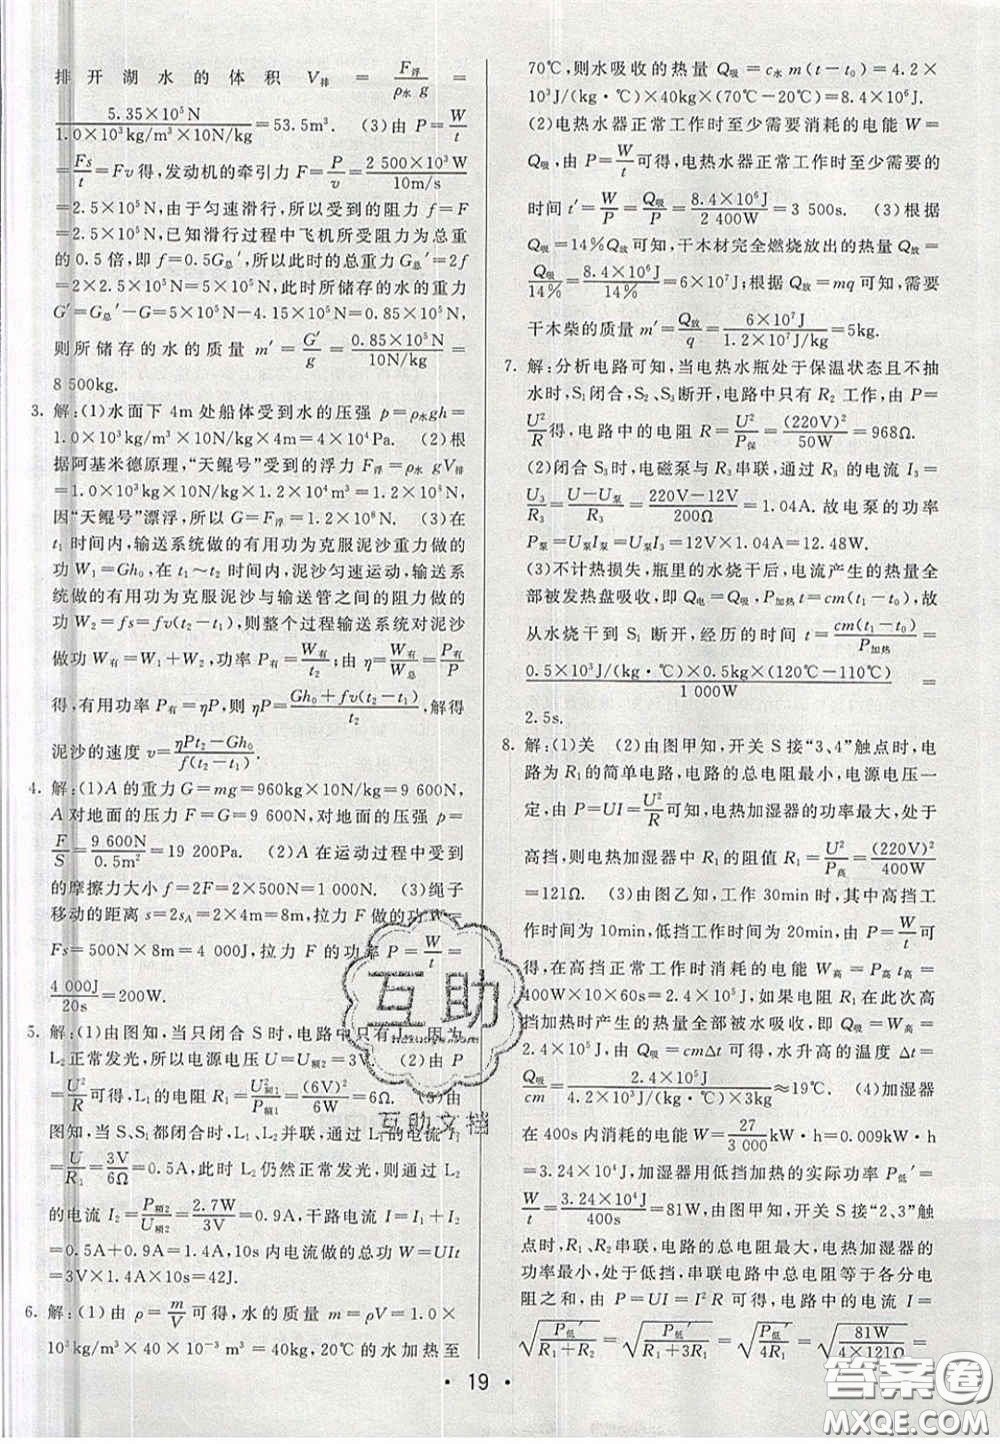 排开湖水的体积 V排 = F浮/(ρ水 g) =
5.35×10⁵N/(1.0×10³kg/m³×10N/kg)=53.5m³. (3)由 P=W/t
=Fs/t=Fv得,发动机的牵引力 F=P/v=2 500×10³W/10m/s
=2.5×10⁵N,由于匀速滑行,所以受到的阻力 f=F
=2.5×10⁵N,已知滑行过程中飞机所受阻力为总重
的0.5倍,即 f=0.5G总′,所以此时的总重力 G总′=2f
=2×2.5×10⁵N=5×10⁵N,此时所储存的水的重力
G′=G总′−G=5×10⁵N−4.15×10⁵N=0.85×10⁵N,
则所储存的水的质量 m′=G′/g=0.85×10⁵N/10N/kg=
8 500kg.
3. 解:(1)水面下 4m 处船体受到水的压强 p=ρ水gh=
1.0×10³kg/m³×10N/kg×4m=4×10⁴Pa. (2)根
据阿基米德原理,“天鲲号”受到的浮力 F浮=ρ水 gV排
=1.0×10³kg/m³×10N/kg×1.2×10⁴m³=1.2×10⁸N,
因“天鲲号”漂浮,所以 G=F浮=1.2×10⁸N. (3)在
t₁ 时间内,输送系统做的有用功为克服泥沙重力做的
功 W₁=Gh₀,在 t₁~t₂ 时间内,泥沙匀速运动,输送系
统做的有用功为克服泥沙与输送管之间的阻力做的
功 W₂=fs=fv(t₂−t₁),则整个过程输送系统对泥沙
做功 W有=W₁+W₂,功率 P有=W有/t₂;由 η=W有/W总=P有/P
得,有用功率 P有=ηP,则 ηP=(Gh₀+fv(t₂−t₁))/t₂,解得
泥沙的速度 v=(ηPt₂−Gh₀)/(f(t₂−t₁)).
4. 解:(1)A 的重力 G=mg=960kg×10N/kg=9 600N,
A 对地面的压力 F=G=9 600N,对地面的压强 p=
F/S=9 600N/0.5m²=19 200Pa. (2)A 在运动过程中受到
的摩擦力大小 f=2F=2×500N=1 000N. (3)绳子
移动的距离 s=2sA=2×4m=8m,拉力 F 做的功 W=
Fs=500N×8m=4 000J,拉力 F 的功率 P=W/t=
4 000J/20s=200W.
5. 解:(1)由图知,当只闭合 S 时,电路中只有 L₂,因为
L₂正常发光,所以电源电压 U=U额2=3V. (2)由 P
=U²/R可得,L₁的电阻 R₁=U²额1/P额1=(6V)²/6W=6Ω. (3)由
图知,当 S、S₁都闭合时,L₁、L₂并联,通过 L₁的电流 I₁
=U/R₁=3V/6Ω=0.5A,此时 L₂仍然正常发光,则通过 L₂
的电流 I₂=P额2/U额2=2.7W/3V=0.9A,干路电流 I=I₁+I₂
=0.5A+0.9A=1.4A,10s 内电流做的总功 W=UIt
=3V×1.4A×10s=42J.
6. 解:(1)由 ρ=m/V可得,水的质量 m=ρV=1.0×
10³kg/m³×40×10⁻³ m³=40kg,20℃的水加热至
70℃,则水吸收的热量 Q吸=c水 m(t−t₀)=4.2×
10³J/(kg·℃)×40kg×(70℃−20℃)=8.4×10⁶J.
(2)电热水器正常工作时至少需要消耗的电能 W=
Q吸,由 P=W/t可得,电热水器正常工作时至少需要的
时间 t′=W/P=Q吸/P=8.4×10⁶J/2 400W=3 500s. (3)根据
Q吸=14%Q放可知,干木材完全燃烧放出的热量 Q放=
Q吸/14%=8.4×10⁶J/14%=6×10⁷J;根据 Q放=mq 可知,需要
干木柴的质量 m′=Q放/q=6×10⁷J/1.2×10⁷J/kg=5kg.
7. 解:分析电路可知,当电热水瓶处于保温状态且不抽
水时,S₁闭合,S₂、S₃断开,电路中只有 R₂ 工作,由 P=
U²/R得,电路中的电阻 R=U²/P保=(220V)²/50W=968Ω.
(2)闭合 S₃时,电磁泵与 R₃串联,通过 R₃的电流 I₃=
U₃/R₃=(U−U泵)/R₃=(220V−12V)/200Ω=1.04A. 故电泵的功率
P泵=U泵I泵=U泵I₃=12V×1.04A=12.48W.
(3)不计热损失,瓶里的水烧干后,电流产生的热量全
部被发热盘吸收,即 Q电=Q吸,P加热t=cm(t₁−t₀),故
从水烧干到 S₁ 断开,经历的时间 t=cm(t₁−t₀)/P加热=
0.5×10³J/(kg·℃)×0.5kg×(120℃−110℃)/1 000W=
2.5s.
8. 解:(1)关 (2)由图甲知,开关 S 接“3、4”触点时,电
路为 R₁的简单电路,电路的总电阻最小,电源电压一
定,由 P=UI=U²/R可知,电热加湿器的功率最大,处于
高挡,则电热加湿器中 R₁的阻值 R₁=U²/P高=(220V)²/400W
=121Ω. (3)由图乙知,工作 30min 时,其中高挡工
作时间为10min,低挡工作时间为20min,由 P=W/t可
得,在高挡正常工作时消耗的电能 W高=P高 t高=
400W×10×60s=2.4×10⁵J,如果电阻 R₁在此次高
挡加热时产生的热量全部被水吸收,即 Q吸=W高=
2.4×10⁵J,由 Q吸=cmΔt 可得,水升高的温度 Δt=
Q吸/cm=2.4×10⁵J/(4.2×10³J/(kg·℃)×3kg)≈19℃. (4)加湿器
在 400s 内消耗的电能 W=27/3 000kW·h=0.009kW·h
=3.24×10⁴J,加湿器用低挡加热的实际功率 P低′=
W/t=3.24×10⁴J/400s=81W,由图甲知,开关 S 接“2、3”触
点时,R₁、R₂串联,电路的总电阻最大,电热加湿器的
功率最小,处于低挡,串联电路中总电阻等于各分电
阻之和,由 P=UI=I²R 可得,电路中的电流 I=
√(P低′/(R₁+R₂))=√(P低′/(3R₁+R₁))=√(P低′/4R₁)=√(81W/(4×121Ω))=
· 19 ·
互助
互助文档
答案圈
MXQE.COM